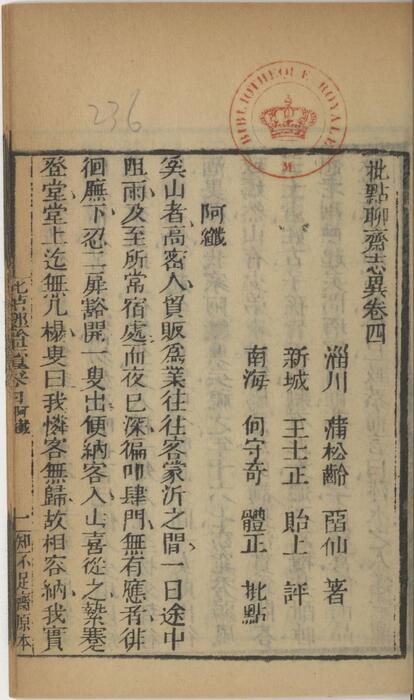 批點聊齋志異卷四
淄川 蒲松齡 畱仙 著
新城 王士正 貽上 評
南海 何守奇 體正 批點
阿纖
奚山者高密人貿販爲業往往客蒙沂之間一日途中
阻雨及至所常宿處而夜已深徧叩肆門無有應者徘
徊廡下忍二扉豁開一叟出便納客入山喜從之縶蹇
登堂堂上迄無几榻叟曰我憐客無歸故相容納我實
批點聊齋志異卷四 阿纖 一 知不足齋原本
236
BIBLIOTHEQUE ROYALE
M